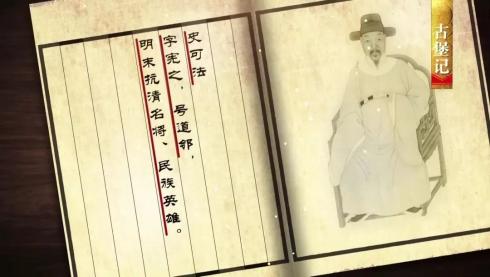 古堡记
史可法
字宪之，号道邻，
明末抗清名将、民族英雄。